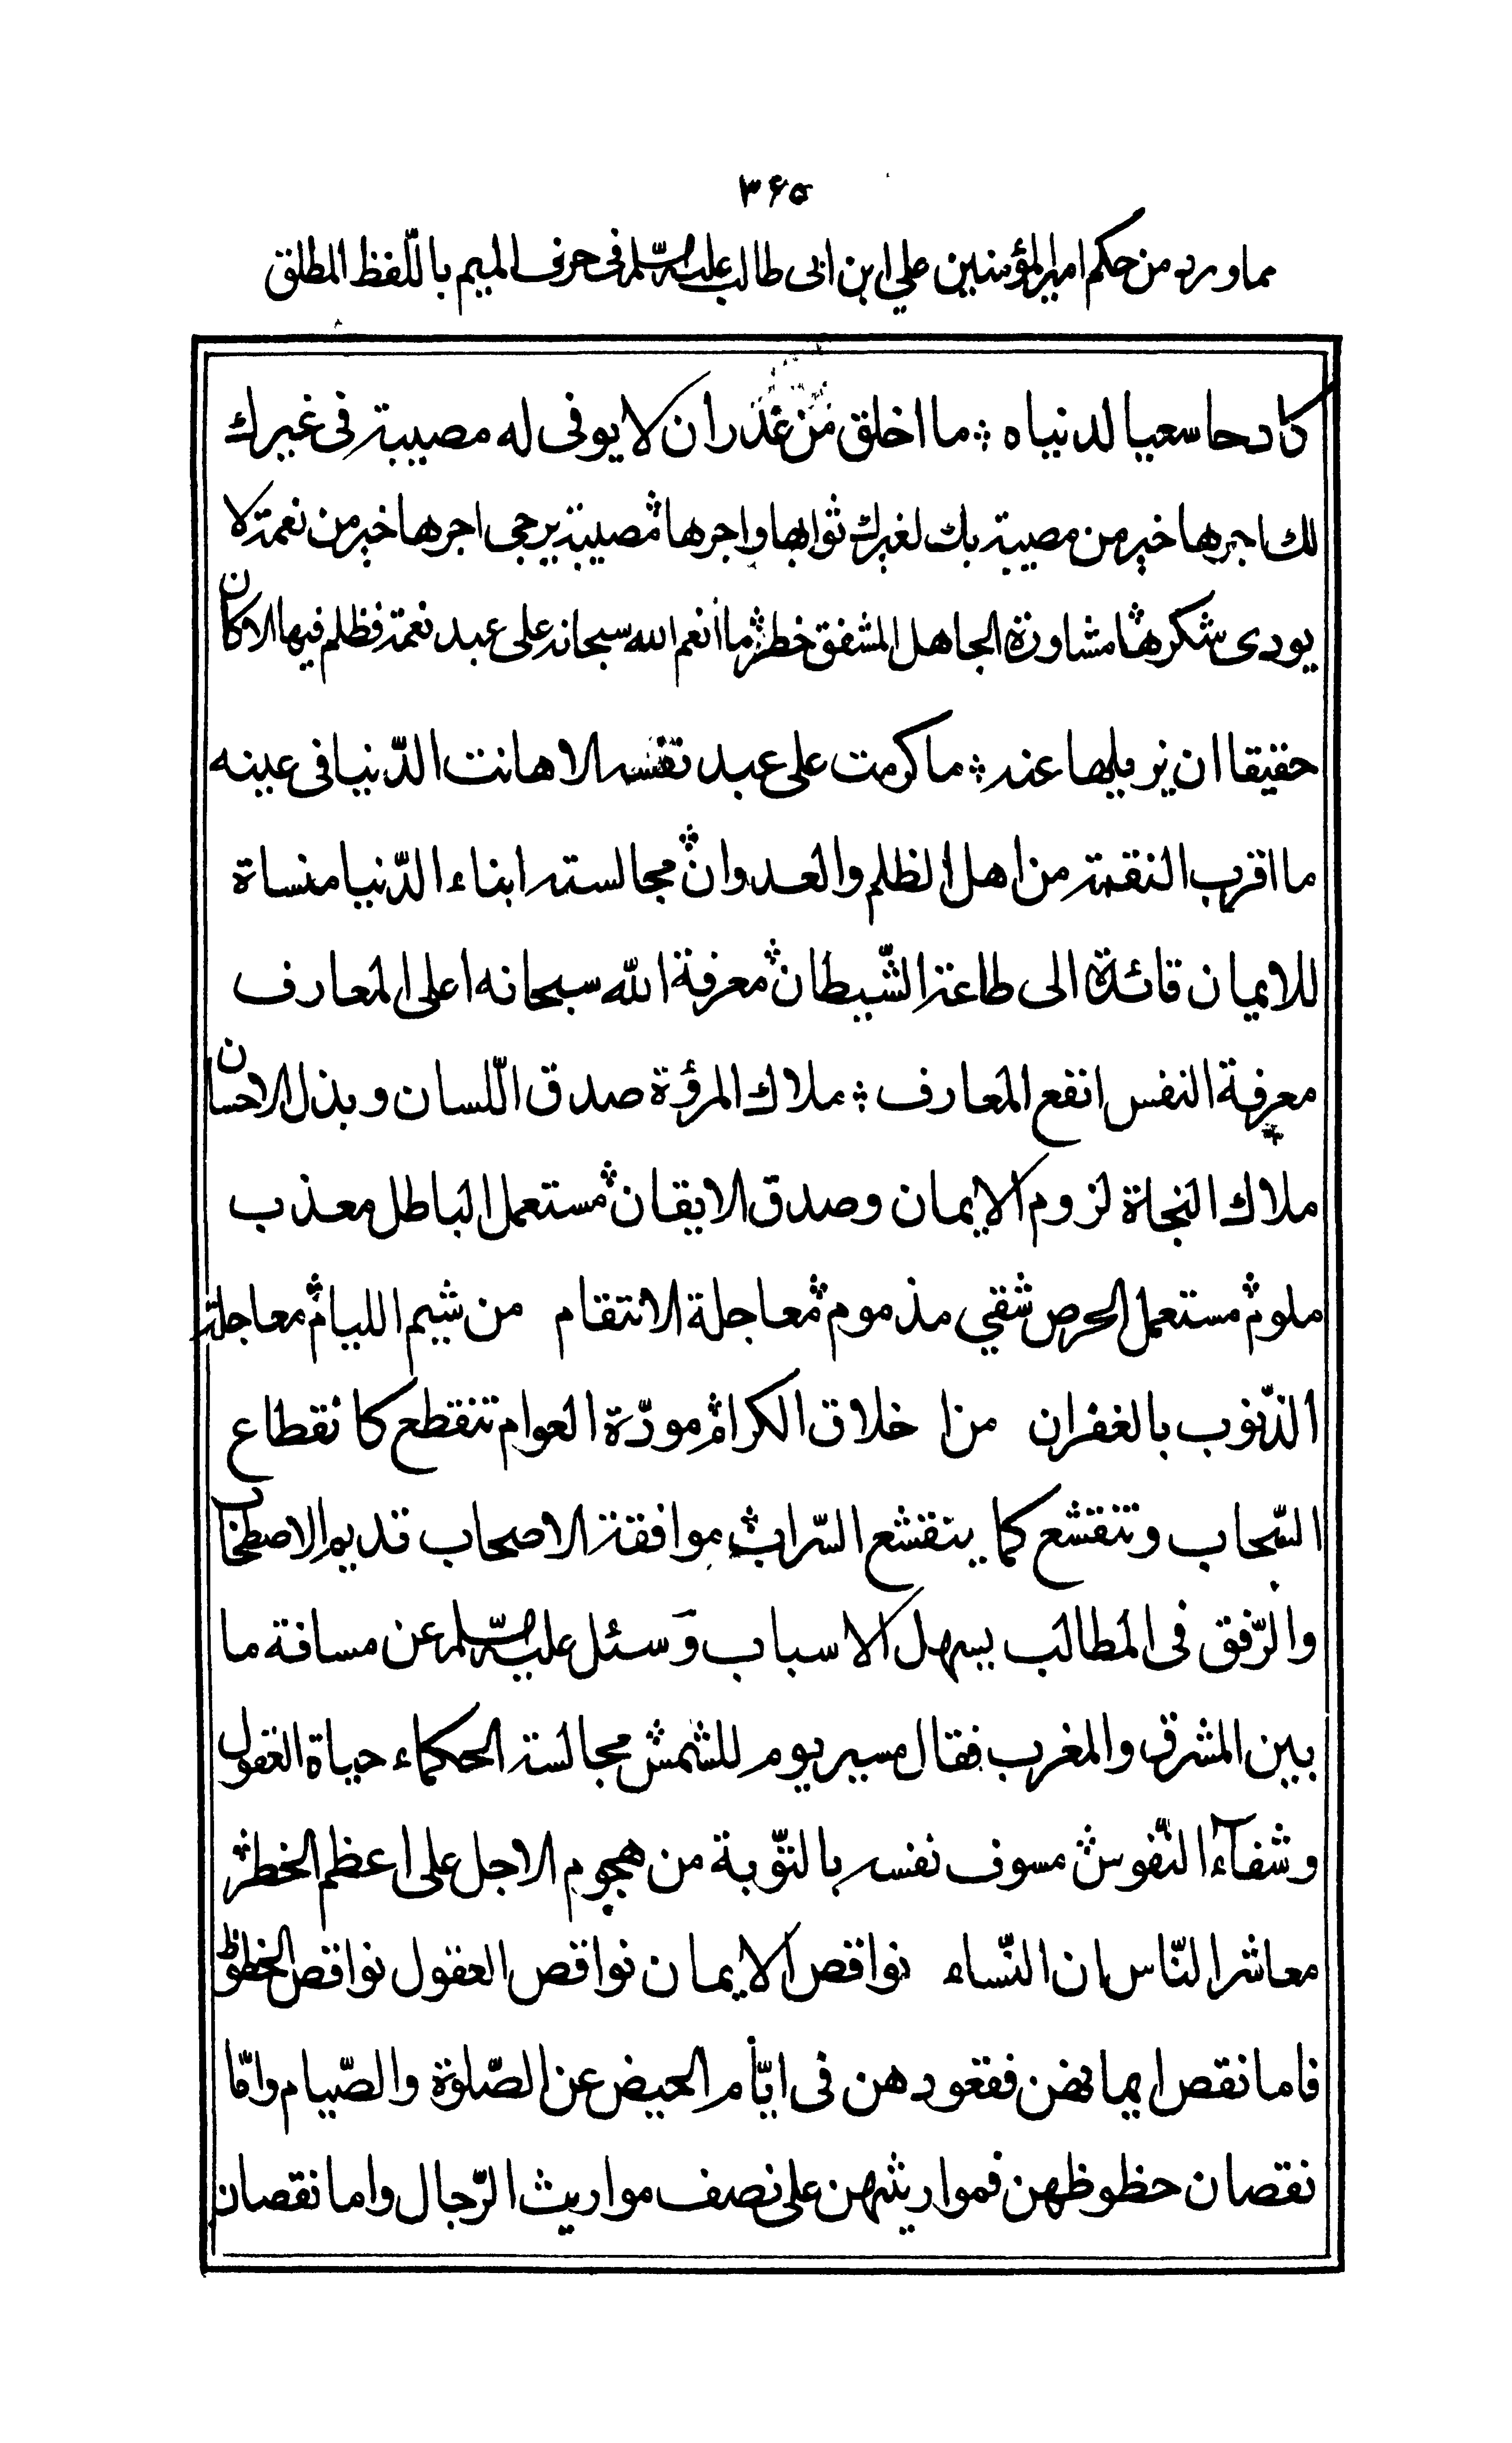 ۳۶۵
مما ورد من حكم امير المؤمنين علي ابن ابى طالب عليه السّلم فى حرف الميم باللّفظ المطلق
كادحا سعيا لدنياه ؞ ما اخلق من غدر ان لا يوفى له مصيبة فى غيرك
لك اجرها خير من مصيبة بك لغيرك ثوابها واجرها ؞ مصيبة يرجى اجرها خير من نعمة لا
يودى شكرها ؞ مشاورة الجاهل المشفق خطر ؞ ما انعم الله سبحانه على عبد نعمة فظلم فيها الا كان
حقيقا ان يزيلها عنه ؞ ما كرمت على عبد نفسه الا هانت الدّنيا فى عينه
ما اقرب النقمة من اهل الظلم والعدوان ؞ مجالسة ابناء الدّنيا منساة
للايمان قائدة الى طاعة الشّيطان ؞ معرفة الله سبحانه اعلى المعارف
معرفة النفس انفع المعارف ؞ ملاك المرؤة صدق اللّسان وبذل الاحسان
ملاك النجاة لزوم الايمان وصدق الايقان ؞ مستعمل الباطل معذب
ملوم ؞ مستعمل الحرص شقي مذموم ؞ معاجلة الانتقام من شيم الليام ؞ معاجلة
الذّنوب بالغفران من اخلاق الكرام ؞ مودّة العوام تنقطع كانقطاع
السّحاب وتنقشع كما ينقشع السّراب ؞ موافقة الاصحاب تديم الاصطحاب
والرّفق فى المطالب يسهل الاسباب وَسئل عليه السّلم عن مسافة ما
بين المشرق والمغرب فقال مسير يوم للشمس ؞ مجالسة الحكماء حياة العقول
وشفآء النّفوس ؞ مسوف نفسه بالتّوبة من هجوم الاجل على اعظم الخطر ؞
معاشر النّاس ان النّساء نواقص الايمان نواقص العقول نواقص الحظوظ
فاما نقص ايمانهن فقعودهن فى ايّام الحيض عن الصّلوة والصّيام وامّا
نقصان حظوظهن فمواريثهن على نصف مواريث الرّجال واما نقصان